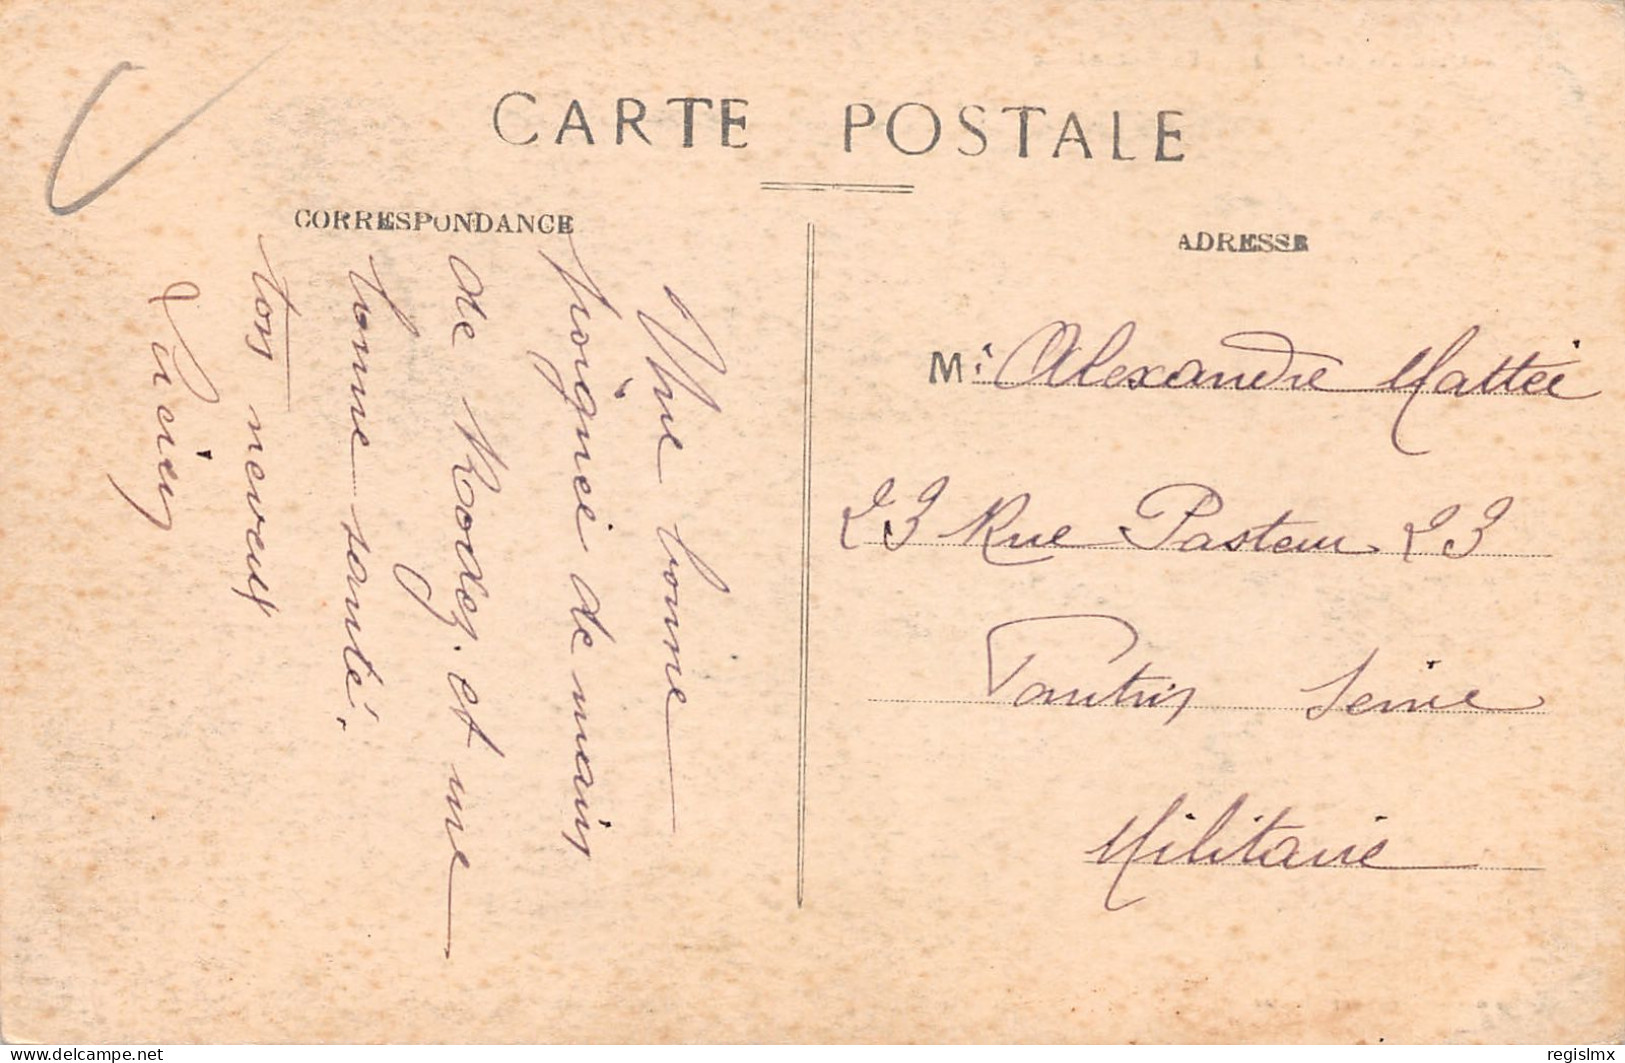 CARTE POSTALE
CORRESPONDANCE
ADRESSE
Une bonne
poignée de main
de Rodez. et une
bonne santé.
ton neveu
Lucien
Mr Alexandre Mattei
23 Rue Pasteur 23
Pantin Seine
Militaire
delcampe.net
regislmx